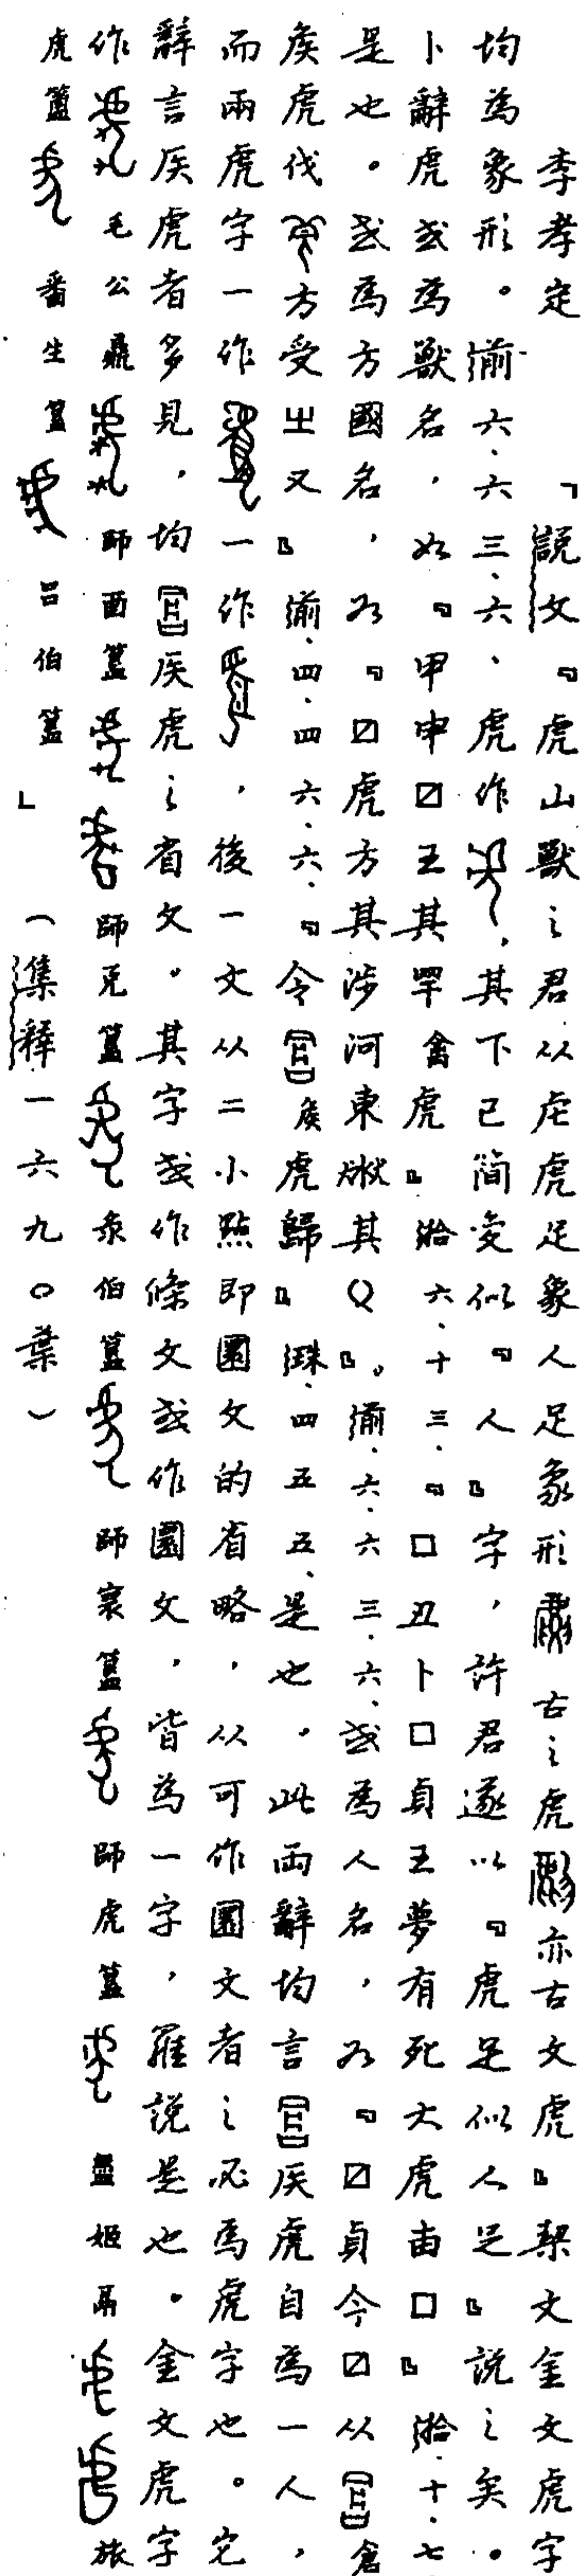 李孝定　「說文『虎山獸之君从虍虎足象人足象形　古之虎　亦古文虎』栔文金文虎字
均為象形。前.六.六三.六、虎作　，其下已簡変似『人』字，許君遂以『虎足似人足』說之矣。
卜辭虎或為獸名，如『甲申☐王其𦊅禽虎』拾.六.十三.『□丑卜□貞王夢有死大虎由□』拾.十.七
是也。或為方國名，如『☐虎方其涉河東㳄其　』。前.六.六三.六、或為人名，如『☐貞今☐从　倉
矦虎伐　方受㞢又』前.四.四六.六.『令　矦虎歸』珠.四五五、是也。此兩辭均言　矦虎自為一人，
而兩虎字一作　一作　，後一文从二小點即圜文的省略，从可作圜文者之必為虎字也。它
辭言矦虎者多見，均　矦虎之省文。其字或作條文或作圜文，皆為一字，羅說是也。金文虎字
作　毛公鼎　師酉簋　師克簋　彔伯簋　師㝨簋　師虎簋　盠姬鬲　旅
虎簠　番生簋　吕伯簋」（集釋一六九〇葉）